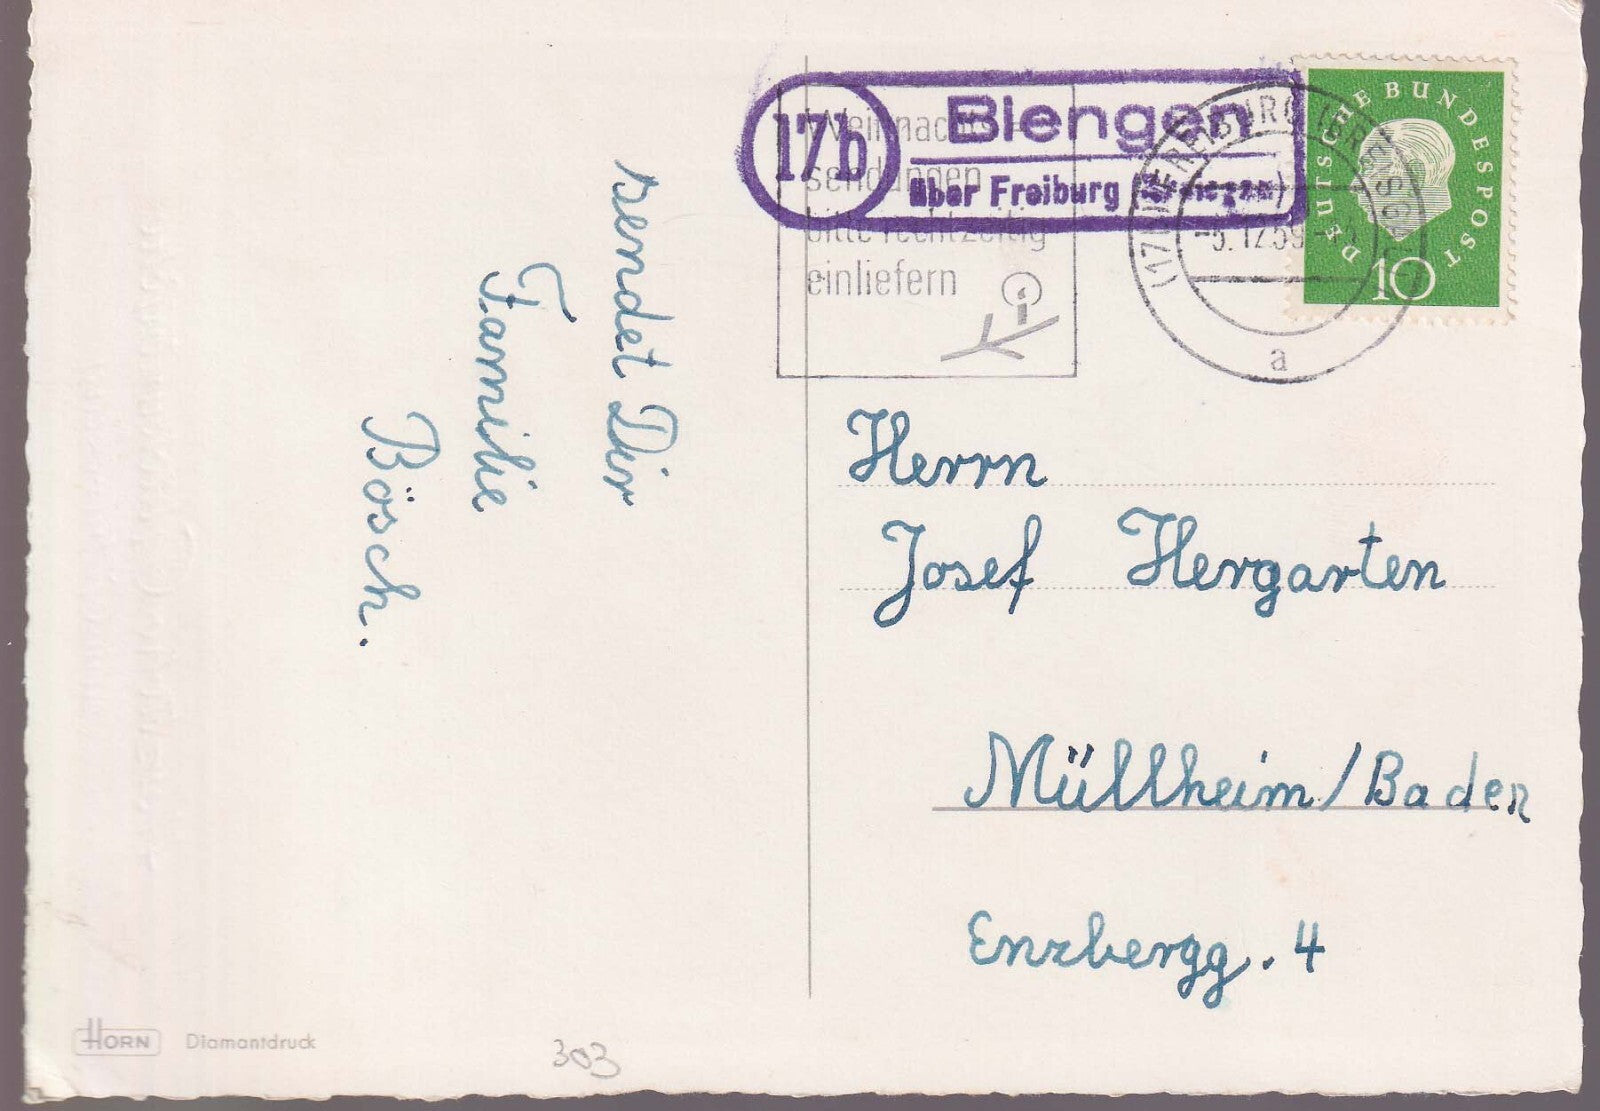 sendet Dir
Familie
Bösch.
17b
Biengen
über Freiburg (Breisgau)
Weihnachts-
sendungen
bitte rechtzeitig
einliefern
(17b) FREIBURG (BREISGAU)
-5.12.59
a
DEUTSCHE BUNDESPOST
10
Herrn
Josef Hergarten
Müllheim/Baden
Enzbergg. 4
HORN Diamantdruck
303